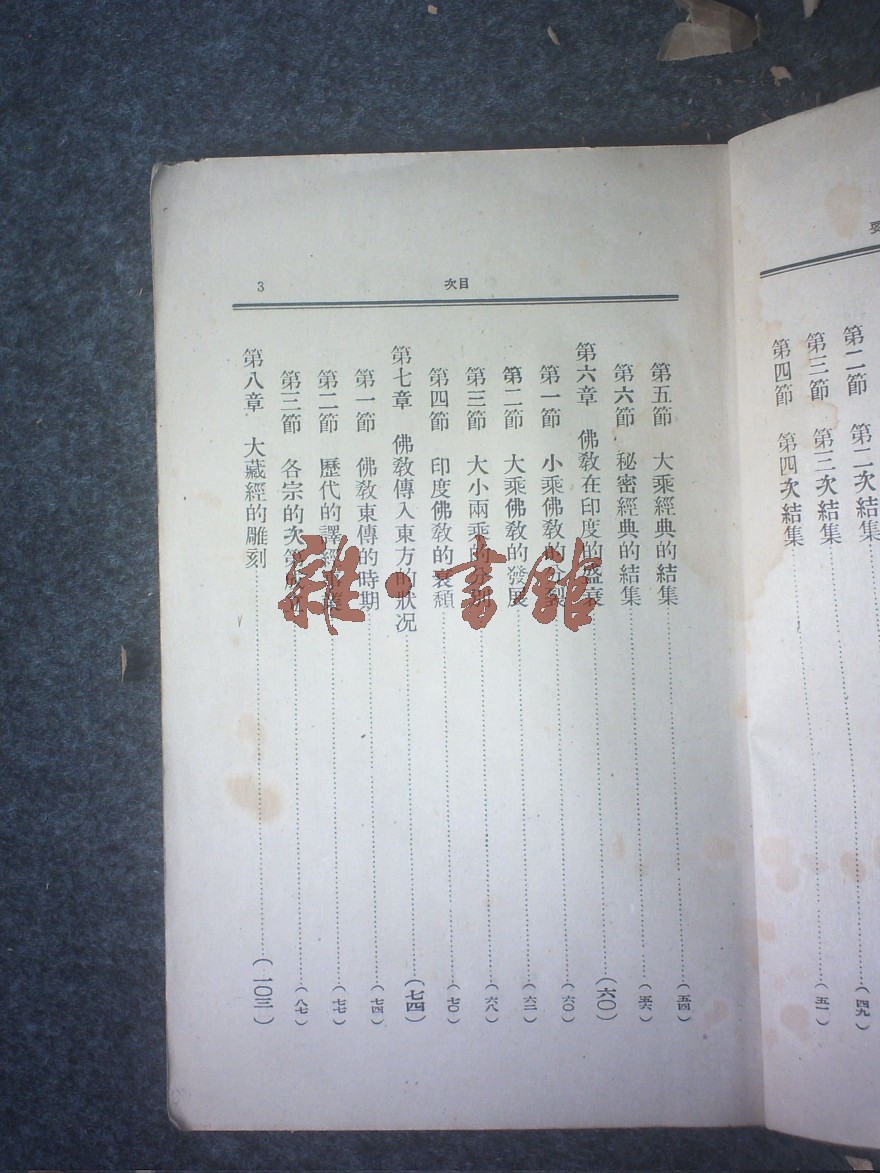 第二節　第二次結集（四九）
第三節　第三次結集……（五一）
第四節　第四次結集……
目次
3
第五節　大乘經典的結集……（五四）
第六節　秘密經典的結集……（五六）
第六章　佛敎在印度的盛衰……（六〇）
第一節　小乘佛敎的分裂……（六〇）
第二節　大乘佛敎的發展……（六二）
第三節　大小兩乘的分別……（六八）
第四節　印度佛敎的衰頹……（七〇）
第七章　佛敎傳入東方的狀况……（七四）
第一節　佛敎東傳的時期……（七四）
第二節　歷代的譯經……（七七）
第三節　各宗的次第……（八七）
第八章　大藏經的雕刻……（一〇三）
雜·書館